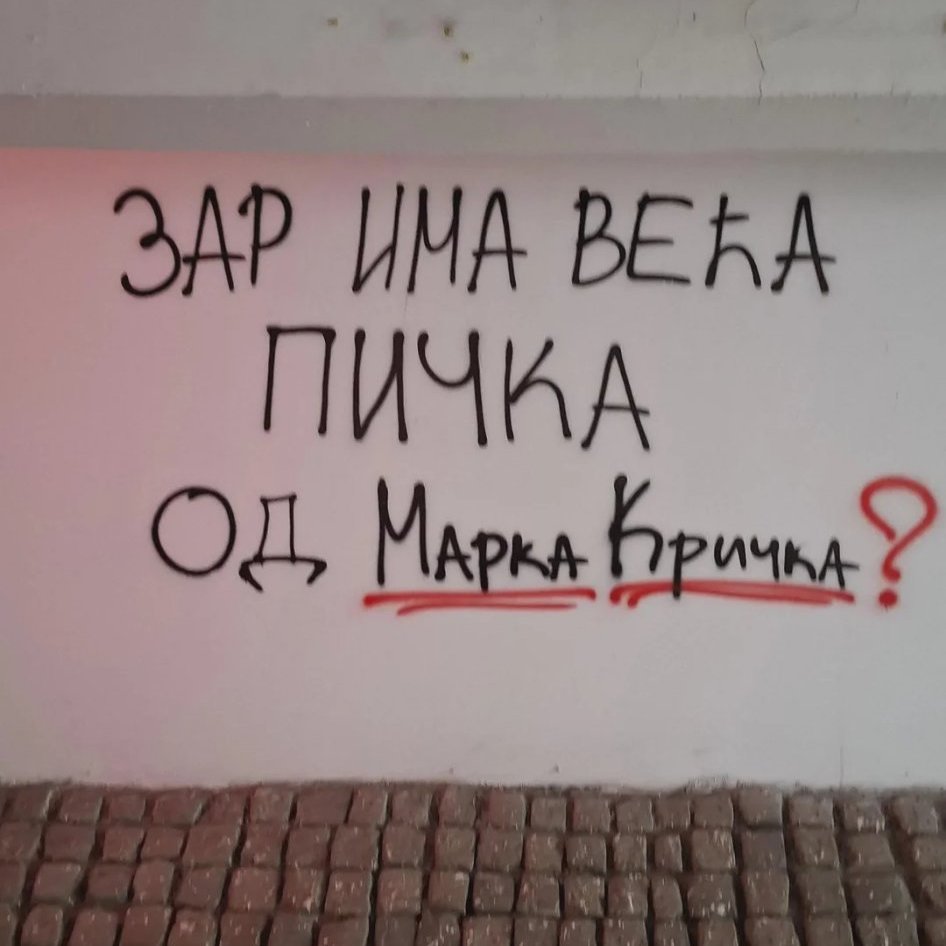 ЗАР ИМА ВЕЋА
ПИЧКА
ОД Марка Кричка?